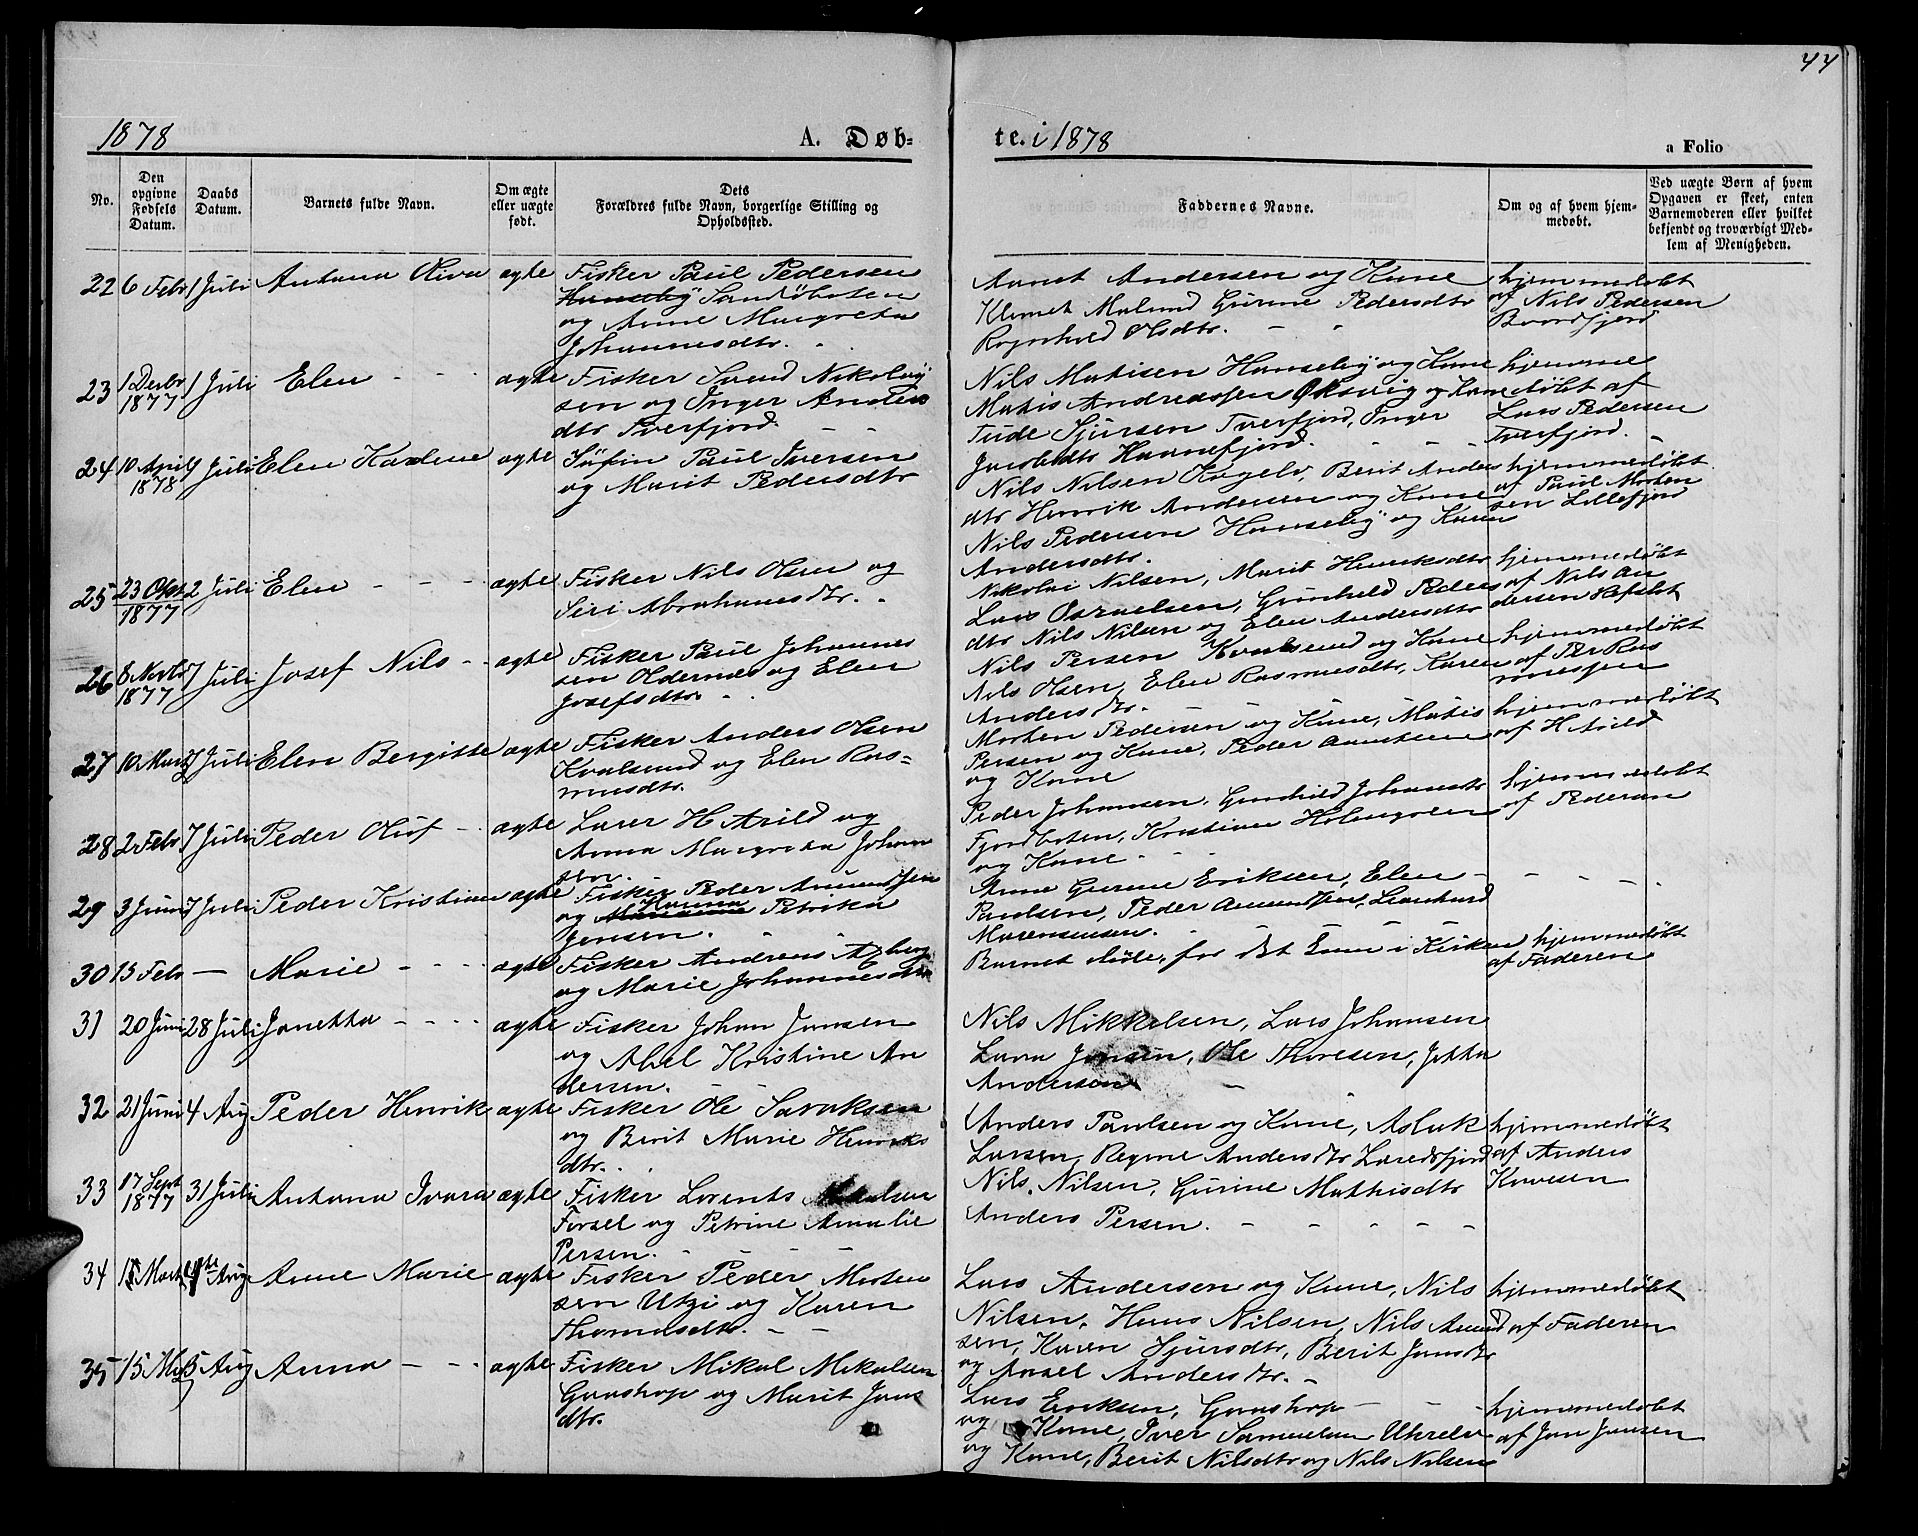 44
1878
A. Døb-
te. i 1878
a Folio
No.
Den opgivne Fødsels Datum.
Daabs Datum.
Barnets fulde Navn.
Om ægte eller uægte født.
Dets Forældres fulde Navn, borgerlige Stilling og Opholdssted.
Faddernes Navne.
Om og af hvem hjemmedøbt.
Ved uægte Børn af hvem Opgaven er skeet, enten Barnemoderen eller hvilket bekjendt og troværdigt Medlem af Menigheden.
22 6 Febr 1 Juli Antona Oliva ægte Fisker Paul Pedersen
Sandøboten
og Anne Margreta
Johannesdtr.
Andersen og Kone
Klemet Gurine Pedersdtr
Ragnhild Olsdtr.
hjemmedøbt
af Nils Pedersen
23 1 Decbr 1877 1 Juli Elen ægte Fisker Svend Nikolay
sen og Inger Anders
dtr Tverfjord.
Nils Matisen Hanseby og Kone
Matis Andreassen og Kone
Sjursen Tverfjord, Inger
Jacobsdtr Havnefjord.
hjemme
døbt af
Lars Pedersen
Tverfjord.
24 10 April 1878 1 Juli Elen ægte Paul Iversen
og Marit Pedersdtr
Nils Nilsen Berit Anders
dtr Henrik Andersen og Kone
Nils Pedersen Hanseby og Karen
Andersdtr.
hjemmedøbt
af Paul Morten
sen Lillefjord
25 23 Okt 1877 2 Juli Elen ægte Fisker Nils Olsen og
Siri Abrahamsdtr.
Nikolai Nilsen, Marit Henriksdtr
Lars Gunhild Peders
dtr Nils Nilsen og Elen Andersdtr
hjemmedøbt
af Nils An
dersen
26 8 1877 7 Juli Josef Nils ægte Fisker Paul Johannes
sen Oldernes og Elen
Josefsdtr.
Nils Persen Kvalsund og Kone
Nils Olsen, Elen Rasmusdtr, Karen
Andersdtr.
hjemmedøbt
af Per Ras
mussen
27 10 Marts 7 Juli Elen Bergitte ægte Fisker Anders Olsen
Kvalsund og Elen Ras=
musdtr.
Morten Pedersen og Kone, Matis
Persen og Kone, Peder
og Kone
hjemmedøbt
af H Arild
28 2 Febr 7 Juli Peder Oluf ægte Lærer H Arild og
Anna Margreta Johan
sen.
Peder Johansen, Gunhild Johansdtr
Fjordboten, Kristian Holmgren
og Kone
hjemmedøbt
af Pedersen
29 3 Juni 7 Juli Peder Kristian ægte Fisker Peder Amundsen
og Hanna Petrika
Jensen.
Anne Gurine Eriksen, Elen
Paulsen, Peder Amundsen, Leonhard
30 15 Febr — Marie ægte Fisker Andreas
og Marie Johannesdtr
Barnet døde, før det kom i Kirken
hjemmedøbt
af Faderen
31 20 Juni 28 Juli Janetta ægte Fisker Johan Jansen
og Abel Kristine An
dersen.
Nils Mikkelsen, Lars Johansen
Lava Jensen, Ole Thoresen, Jekka
Andersen
32 21 Juni 4 Aug Peder Henrik ægte Fisker Ole
og Berit Marie Henriks
dtr.
Anders Paulsen og Kone, Aslak
Larsen, Regine Andersdtr
hjemmedøbt
af Anders
33 17 Sept 1877 31 Juli Antona Ivara ægte Fisker Lorents
og Petrine Amalie
Persen.
Nils Nilsen, Gurine Mathisdtr
Anders Persen.
34 Marts Aug Anne Marie ægte Fisker Peder Morten
sen Utzi og Karen
Thomasdtr.
Lars Andersen og Kone, Nils
Nilsen, Hans Nilsen, Nils Amund
sen, Karen Sjursdtr, Berit Jansdtr
og Andersdtr.
hjemmedøbt
af Faderen
35 15 5 Aug Anna ægte Fisker Mikal Mikalsen
Grashop og Marit Jans
dtr.
Lars Eriksen, Grashop
og Kone, Iver Samuelsen
og Kone, Berit Nilsdtr og Nils Nilsen
hjemmedøbt
af Jan Jansen